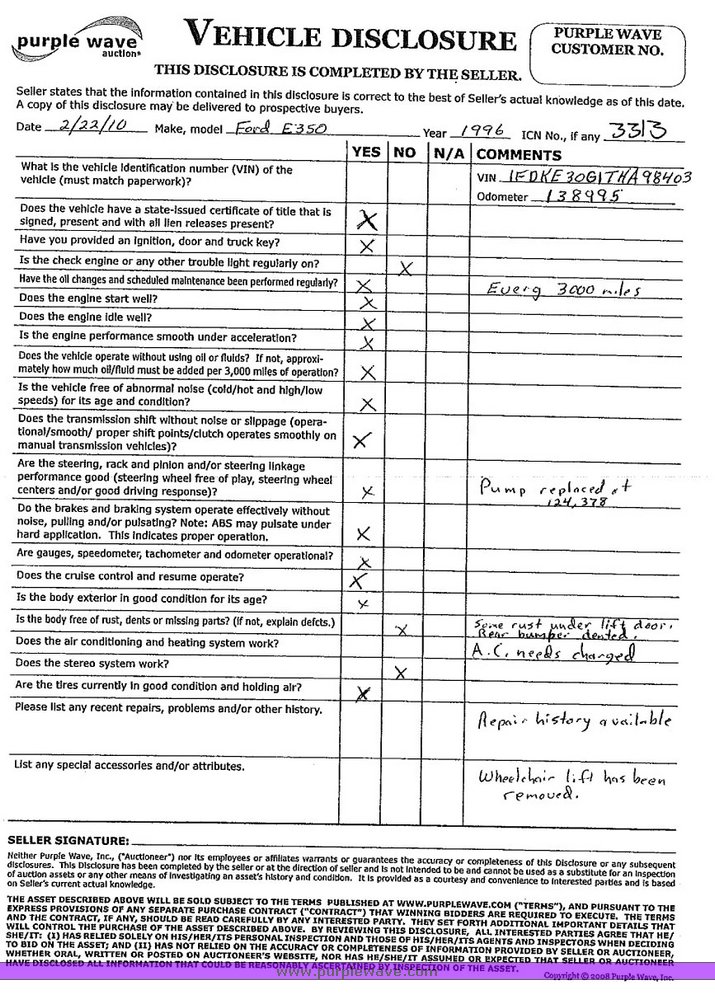 purple wave
auction®
VEHICLE DISCLOSURE
PURPLE WAVE
CUSTOMER NO.
THIS DISCLOSURE IS COMPLETED BY THE SELLER.
Seller states that the information contained in this disclosure is correct to the best of Seller's actual knowledge as of this date.
A copy of this disclosure may be delivered to prospective buyers.
Date 2/22/10 Make, model Ford E350 Year 1996 ICN No., if any 3313
YES NO N/A COMMENTS
What is the vehicle identification number (VIN) of the
vehicle (must match paperwork)?
VIN 1FDKE30G1THA98403
Odometer 138995
Does the vehicle have a state-issued certificate of title that is
signed, present and with all lien releases present? X
Have you provided an ignition, door and truck key? X
Is the check engine or any other trouble light regularly on? X
Have the oil changes and scheduled maintenance been performed regularly? X Every 3000 miles
Does the engine start well? X
Does the engine idle well? X
Is the engine performance smooth under acceleration? X
Does the vehicle operate without using oil or fluids? If not, approxi-
mately how much oil/fluid must be added per 3,000 miles of operation? X
Is the vehicle free of abnormal noise (cold/hot and high/low
speeds) for its age and condition? X
Does the transmission shift without noise or slippage (opera-
tional/smooth/ proper shift points/clutch operates smoothly on
manual transmission vehicles)? X
Are the steering, rack and pinion and/or steering linkage
performance good (steering wheel free of play, steering wheel
centers and/or good driving response)? X Pump replaced at
124,378
Do the brakes and braking system operate effectively without
noise, pulling and/or pulsating? Note: ABS may pulsate under
hard application. This indicates proper operation. X
Are gauges, speedometer, tachometer and odometer operational? X
Does the cruise control and resume operate? X
Is the body exterior in good condition for its age? X
Is the body free of rust, dents or missing parts? (if not, explain defcts.) X Some rust under lift door.
Rear bumper dented.
Does the air conditioning and heating system work? A.C. needs charged
Does the stereo system work? X
Are the tires currently in good condition and holding air? X
Please list any recent repairs, problems and/or other history.
Repair history available
List any special accessories and/or attributes.
Wheelchair lift has been
removed.
SELLER SIGNATURE:
Neither Purple Wave, Inc., ("Auctioneer") nor its employees or affiliates warrants or guarantees the accuracy or completeness of this Disclosure or any subsequent
disclosures. This Disclosure has been completed by the seller or at the direction of seller and is not intended to be and cannot be used as a substitute for an inspection
of auction assets or any other means of investigating an asset's history and condition. It is provided as a courtesy and convenience to interested parties and is based
on Seller's current actual knowledge.
THE ASSET DESCRIBED ABOVE WILL BE SOLD SUBJECT TO THE TERMS PUBLISHED AT WWW.PURPLEWAVE.COM ("TERMS"), AND PURSUANT TO THE
EXPRESS PROVISIONS OF ANY SEPARATE PURCHASE CONTRACT ("CONTRACT") THAT WINNING BIDDERS ARE REQUIRED TO EXECUTE. THE TERMS
AND THE CONTRACT, IF ANY, SHOULD BE READ CAREFULLY BY ANY INTERESTED PARTY. THEY SET FORTH ADDITIONAL IMPORTANT DETAILS THAT
WILL CONTROL THE PURCHASE OF THE ASSET DESCRIBED ABOVE. BY REVIEWING THIS DISCLOSURE, ALL INTERESTED PARTIES AGREE THAT HE/
SHE/IT: (I) HAS RELIED SOLELY ON HIS/HER/ITS PERSONAL INSPECTION AND THOSE OF HIS/HER/ITS AGENTS AND INSPECTORS WHEN DECIDING
TO BID ON THE ASSET; AND (II) HAS NOT RELIED ON THE ACCURACY OR COMPLETENESS OF INFORMATION PROVIDED BY SELLER OR AUCTIONEER,
WHETHER ORAL, WRITTEN OR POSTED ON AUCTIONEER'S WEBSITE, NOR HAS HE/SHE/IT ASSUMED OR EXPECTED THAT SELLER OR AUCTIONEER
HAVE DISCLOSED ALL INFORMATION THAT COULD BE REASONABLY ASCERTAINED BY INSPECTION OF THE ASSET.
www.purplewave.com
Copyright © 2008 Purple Wave, Inc.